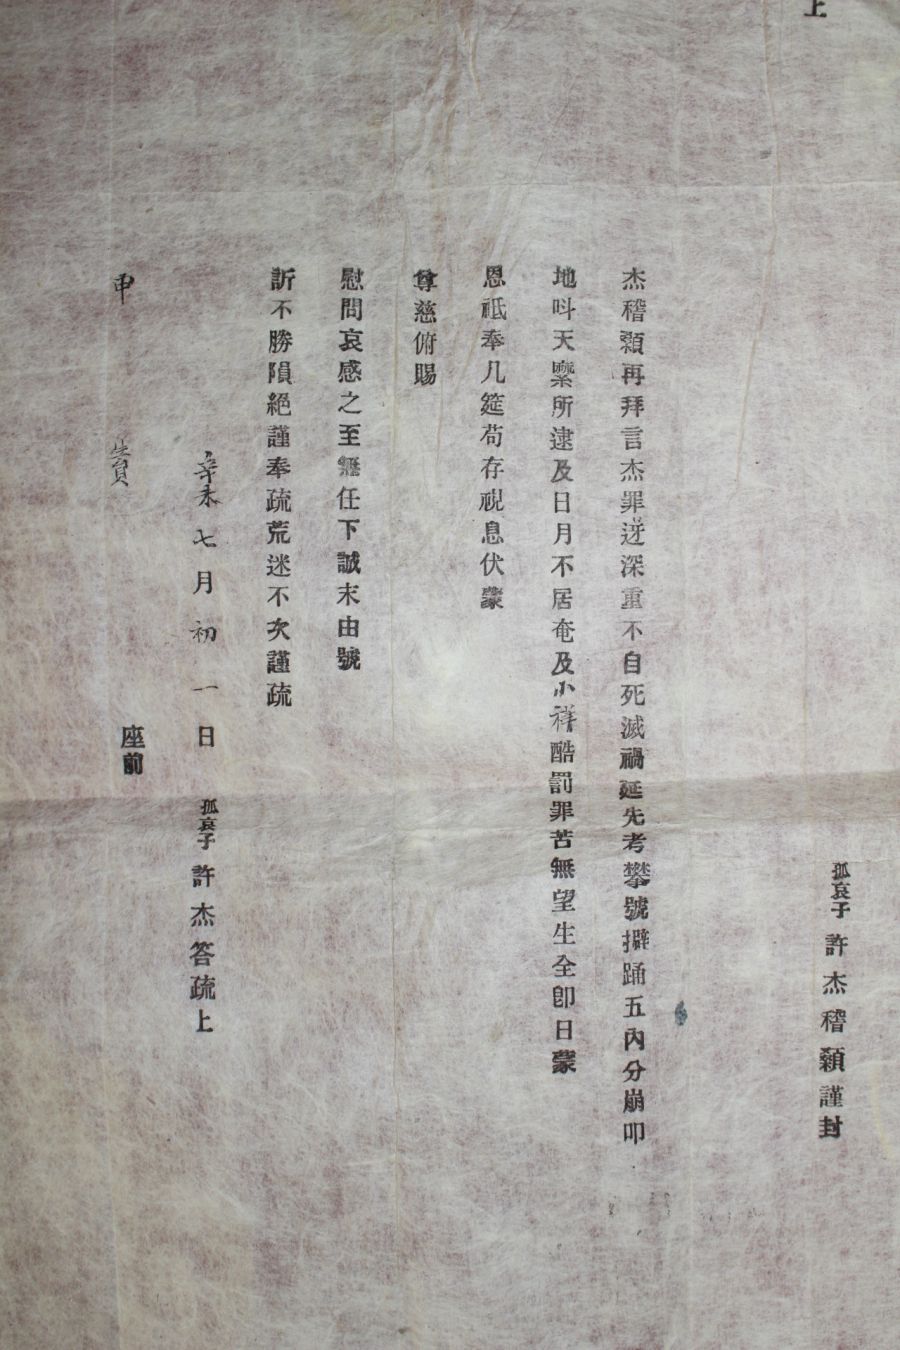 上
孤哀子 許杰稽顙謹封
杰稽顙再拜言杰罪逆深重不自死滅禍延先考攀號擗踊五內分崩叩
地叫天縻所逮及日月不居奄及小祥酷罰罪苦無望生全卽日蒙
恩祗奉几筵苟存視息伏蒙
尊慈俯賜
慰問哀感之至無任下誠末由號
訴不勝隕絕謹奉疏荒迷不次謹疏
辛未七月初一日 孤哀子 許杰答疏上
申 座前